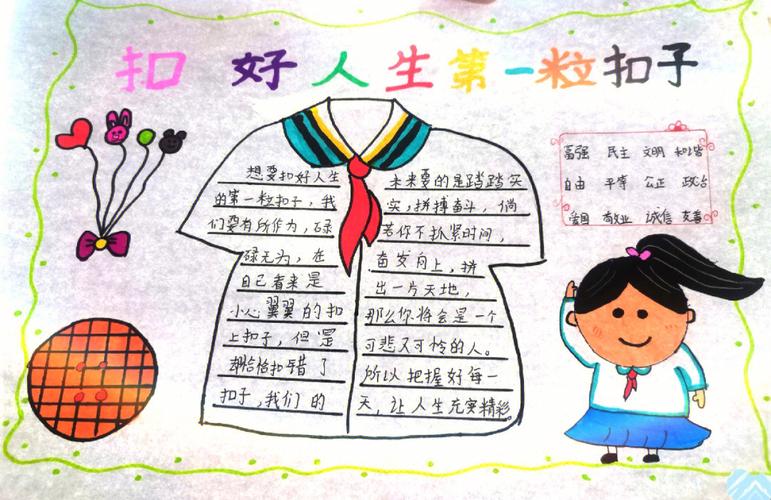 扣好人生第一粒扣子
想要扣好人生
的第一粒扣子，我
们要有所作为，碌
碌无为，在
自己看来是
小心翼翼的扣
上扣子，但是
却恰恰扣错了
扣子，我们的
未来要的是踏踏实
实，拼搏奋斗，倘
若你不抓紧时间，
奋发向上，拼
出一片天地，
那么你将会是一个
可悲又可怜的人。
所以把握好每一
天，让人生充实精彩。
富强 民主 文明 和谐
自由 平等 公正 政治
爱国 敬业 诚信 友善